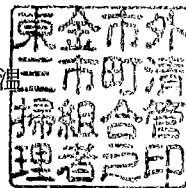 東金市外
二市町清
掃組合管
理者之印
温